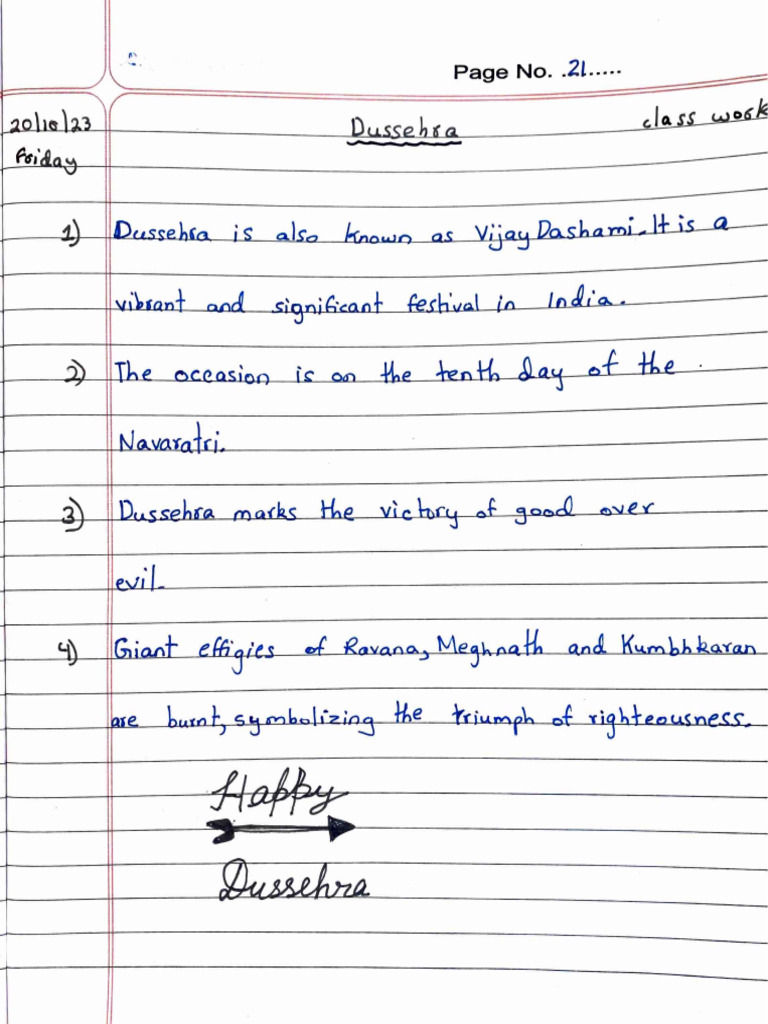 Page No. .21.....
20/10/23 Dussehra class work
Friday
1) Dussehra is also known as Vijay Dashami. It is a
vibrant and significant festival in India.
2) The occasion is on the tenth day of the
Navaratri.
3) Dussehra marks the victory of good over
evil.
4) Giant effigies of Ravana, Meghnath and Kumbhkaran
are burnt, symbolizing the triumph of righteousness.
Happy
Dussehra